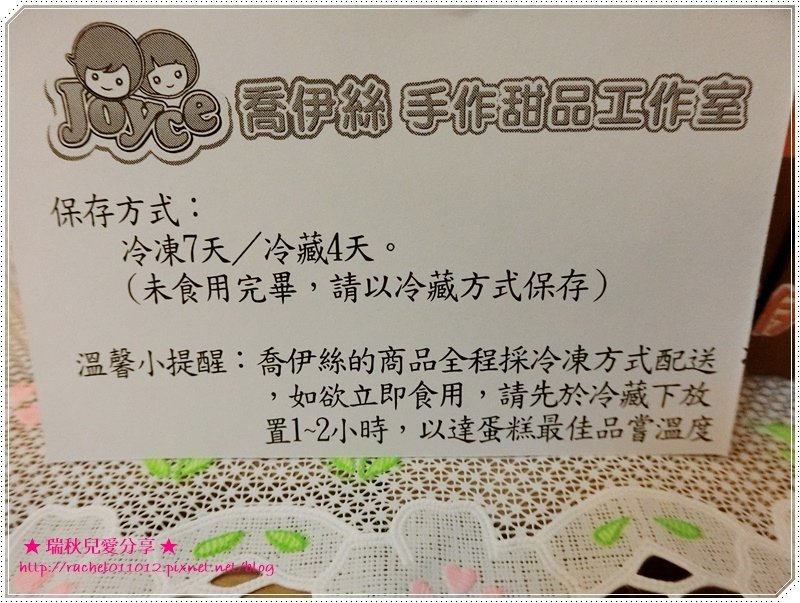 Joyce 喬伊絲 手作甜品工作室
保存方式：
冷凍7天／冷藏4天。
（未食用完畢，請以冷藏方式保存）
溫馨小提醒：喬伊絲的商品全程採冷凍方式配送
，如欲立即食用，請先於冷藏下放
置1~2小時，以達蛋糕最佳品嘗溫度
★ 瑞秋兒愛分享 ★
http://rachel011012.pixnet.net/blog